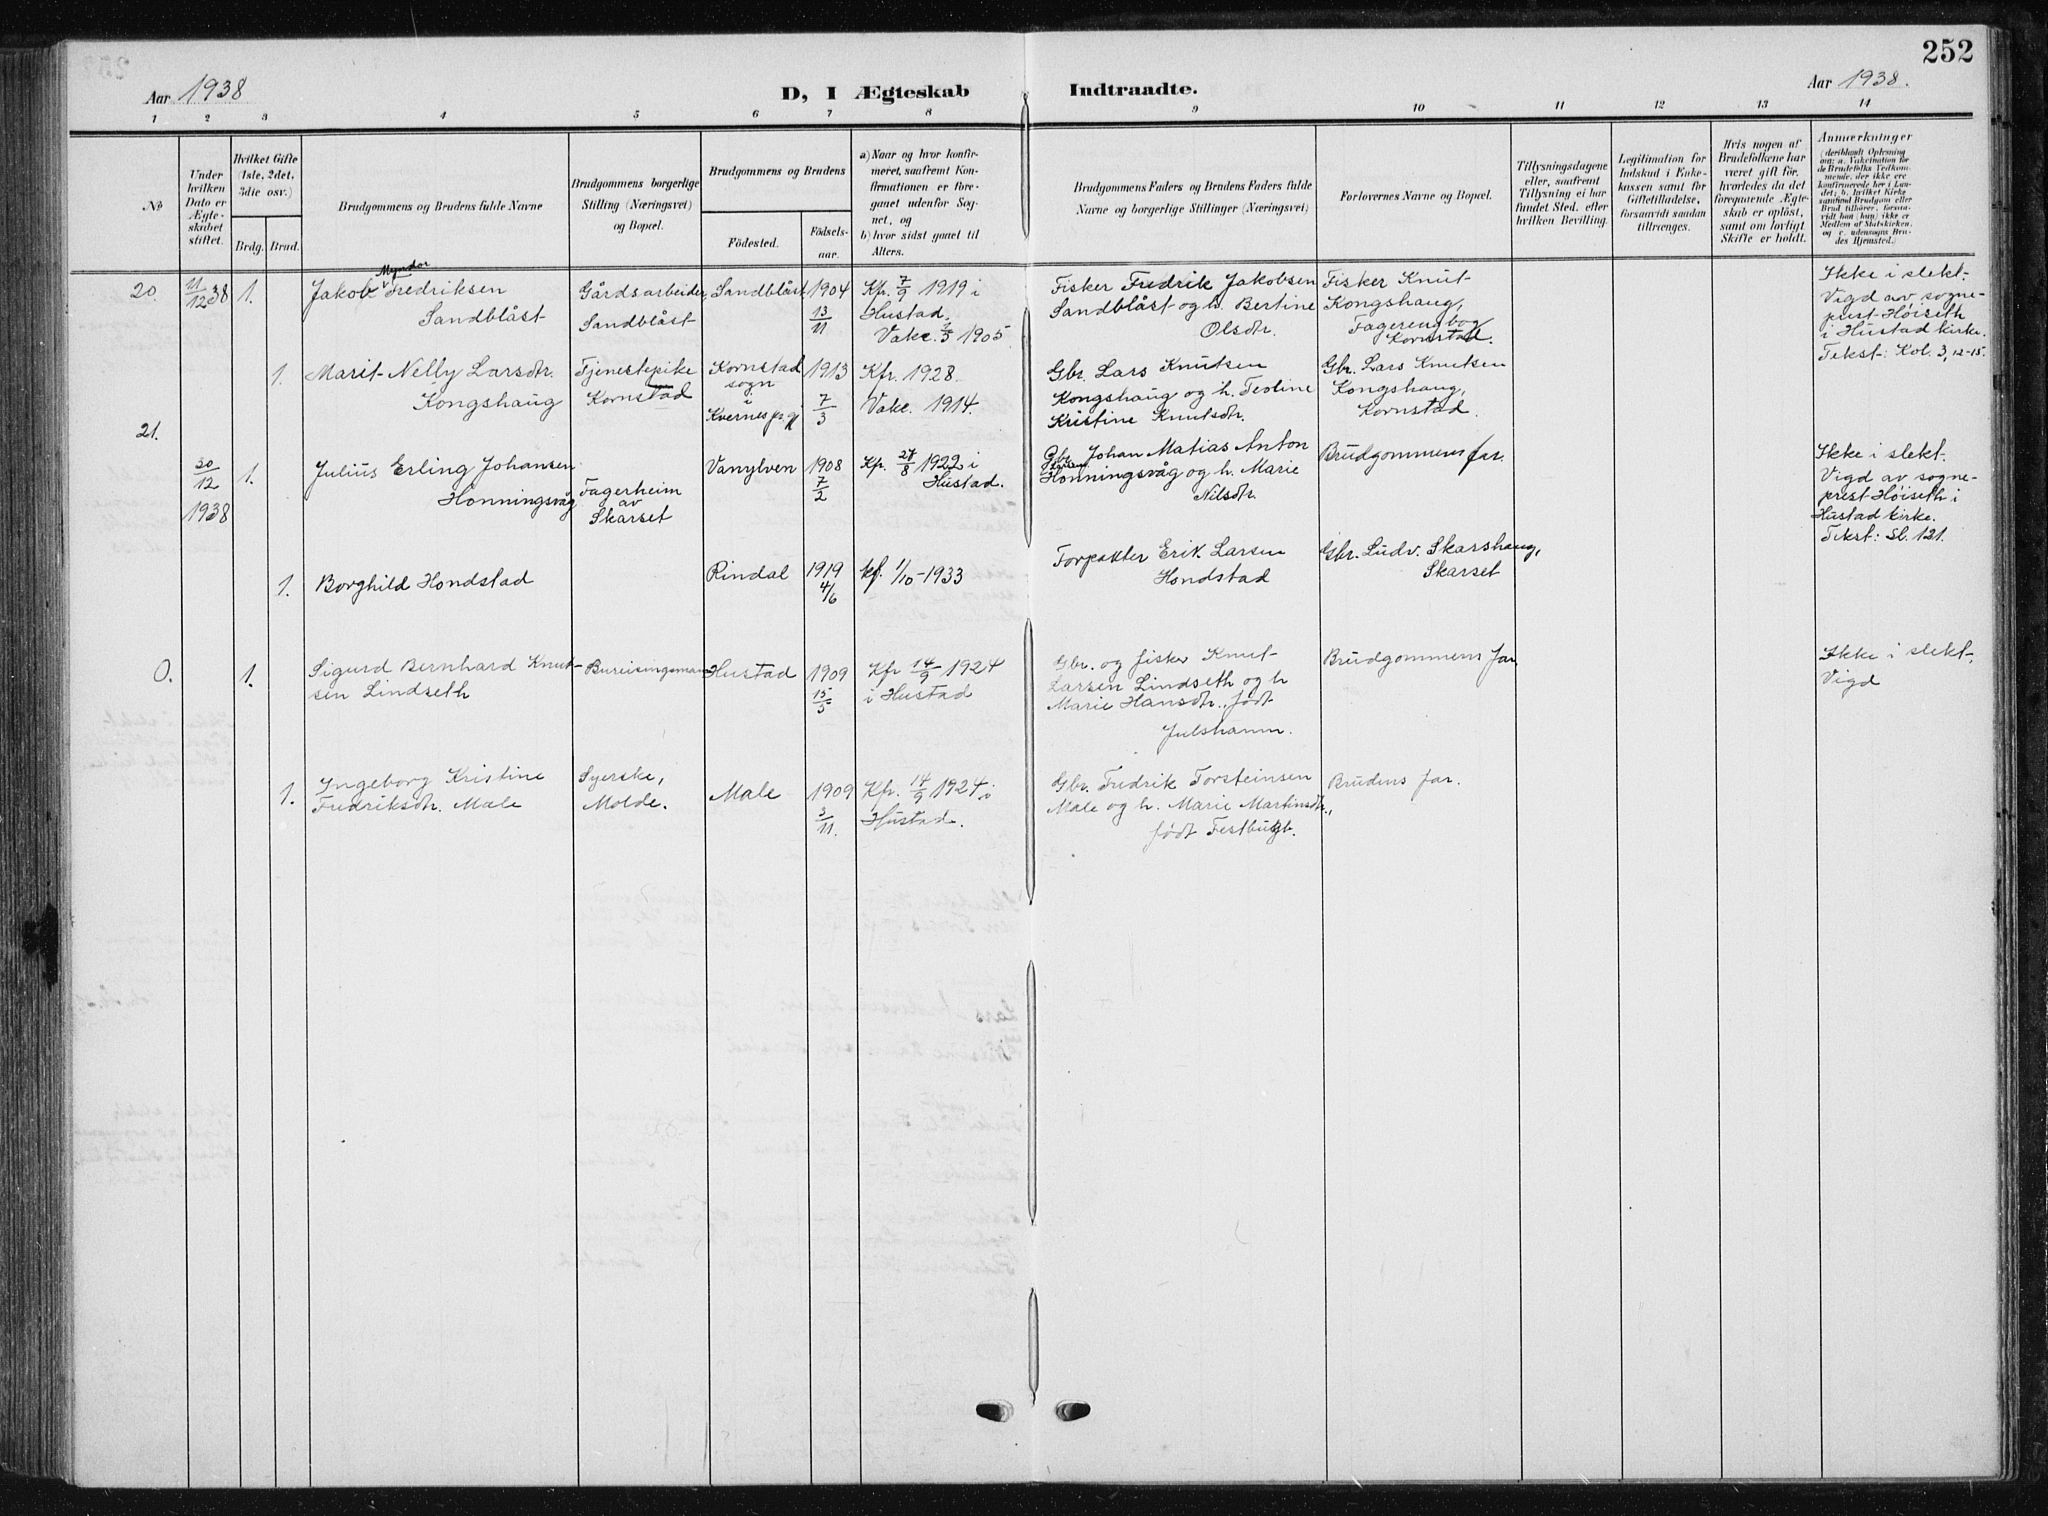 252
Aar 1938
D, I Ægteskab Indtraadte.
Aar 1938.
1 2 3 4 5 6 7 8 9 10 11 12 13 14
No
Under hvilken Dato er Ægteskabet stiftet.
Hvilket Gifte (1ste, 2det, 3die osv.)
Brdg. Brud.
Brudgommens og Brudens fulde Navne
Brudgommens borgerlige Stilling (Næringsvei) og Bopæl.
Brudgommens og Brudens
Fødested. Fødsels-aar.
a) Naar og hvor konfirmeret, saafremt Konfirmationen er foregaaet udenfor Sognet, og
b) hvor sidst gaaet til Alters.
Brudgommens Faders og Brudens Faders fulde Navne og borgerlige Stillinger (Næringsvei)
Forlovernes Navne og Bopæl.
Tillysningsdagene eller, saafremt Tillysning ei har fundet Sted, efter hvilken Bevilling.
Legitimation for Indskud i Enkekassen samt for Giftetilladelse, forsaavidt saadan tiltrænges.
Hvis nogen af Brudefolkene har været gift før, hvorledes da det foregaaende Ægteskab er opløst, samt om lovligt Skifte er holdt.
Anmærkninger
(deriblandt Oplysning om: a. Vakcination for de Brudefolks Vedkommende, der ikke ere konfirmerede her i Landet; b. hvilket Kirkesamfund Brudgom eller Brud tilhører, forsaavidt han (hun) ikke er Medlem af Statskirken, og c. udensogns Brudes Hjemsted.)
20. 11/12 38 1. Jakob Myndor Fredriksen
Sandblåst
Gårdsarbeider,
Sandblåst
Sandblåst 1904
13/11
Kfr. 7/9 1919 i
Hustad.
Vakc. 1905
Fisker Fredrik Jakobsen
Sandblåst og h. Bertine
Olsdtr.
Fisker Knut
Kongshaug,
Kornstad.
Ikke i slekt.
Vigd av sogne-
prest Høiseth
i Hustad kirke.
Tekst: Kol. 3, 12-15.
1. Marit Nelly Larsdtr.
Kongshaug
Tjenestepike
Kornstad
Kornstad
sogn
i
Kvernes
1913
7/3
Kfr. 1928.
Vakc. 1914.
Gbr. Lars Knutsen
Kongshaug og h. Teoline
Kristine Knutsdtr.
Gbr. Lars Knutsen
Kongshaug,
Kornstad.
21.
30/12
1938
1. Julius Erling Johansen
Honningsvåg
Fagerheim
av
Skarset
Vanylven 1908
7/2
Kfr. 27/8 1922 i
Hustad.
Gbr. Johan Matias Anton
Honningsvåg og h. Marie
Nilsdtr.
Brudgommens far.
Ikke i slekt.
Vigd av sogne-
prest Høiseth i
Hustad kirke.
Tekst: Sl. 121.
1. Borghild Hondstad
Rindal 1919
4/6
kf. 1/10-1933
Forpakter Erik Larsen
Hondstad
Gbr. Ludv. Skarshaug,
Skarset
0. 1. Sigurd Bernhard Knut-
sen Lindseth
Bureisingsmann
Hustad 1909
15/5
Kfr 14/9 1924
i Hustad
Gbr. og fisker Knut
Larsen Lindseth og h
Marie Hansdtr., født
Julshamn.
Brudgommens far
Ikke i slekt.
Vigd
1. Ingeborg Kristine
Fredriksdtr. Male
Syerske,
Molde.
Male 1909
3/11.
Kfr. 14/9 1924 i
Hustad.
Gbr. Fredrik Torsteinsen
Male og h. Marie Martinsdtr.,
født
Brudens far.